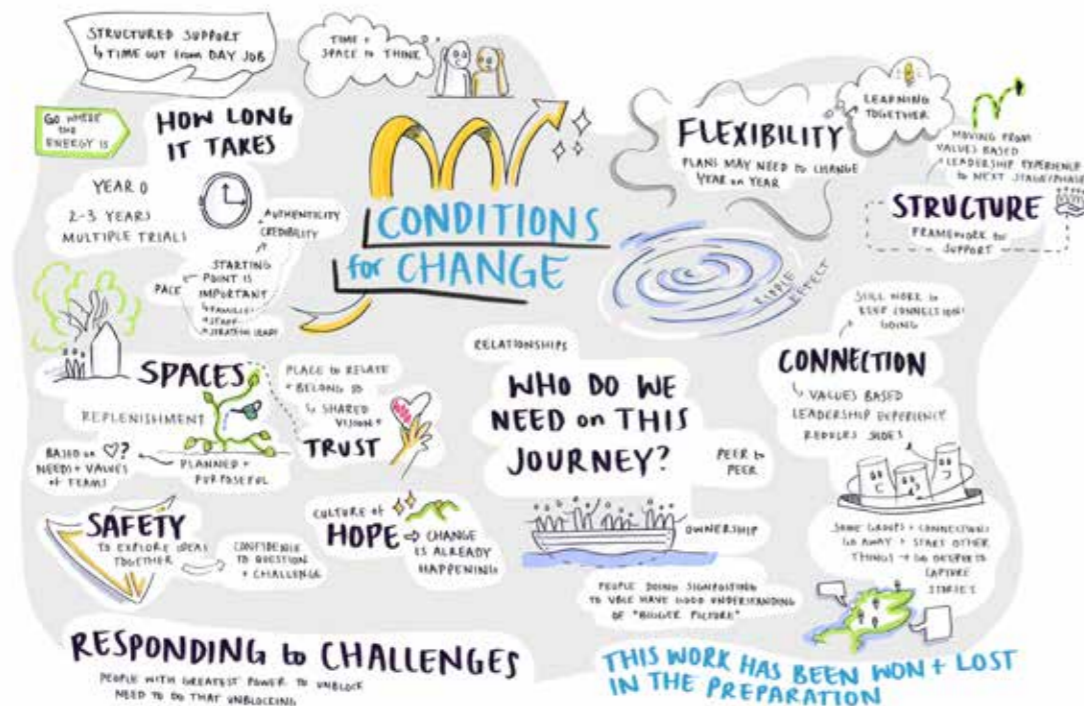 STRUCTURED SUPPORT
↳ TIME OUT from DAY JOB
TIME +
SPACE to THINK
GO WHERE
THE
ENERGY IS
HOW LONG
IT TAKES
YEAR 0
2-3 YEARS
MULTIPLE TRIALS
AUTHENTICITY
CREDIBILITY
STARTING
POINT IS
IMPORTANT
PACE
↳ FAMILIES
CONDITIONS
for CHANGE
FLEXIBILITY
PLANS MAY NEED to CHANGE
YEAR on YEAR
LEARNING
TOGETHER
MOVING FROM
VALUES BASED
LEADERSHIP EXPERIENCE
to NEXT STAGE/PHASE
STRUCTURE
FRAMEWORK for
SUPPORT
RIPPLE EFFECT
SPACES
REPLENISHMENT
PLANNED +
PURPOSEFUL
BASED on ♡?
NEEDS + VALUES
of TEAMS
PLACE to RELATE
+ BELONG SO
↳ SHARED
VISION +
TRUST
SAFETY
TO EXPLORE IDEAS
TOGETHER
CONFIDENCE
TO QUESTION
+ CHALLENGE
CULTURE of
HOPE ⇨ CHANGE
IS ALREADY
HAPPENING
RELATIONSHIPS
WHO DO WE
NEED on THIS
JOURNEY?
PEER to
PEER
OWNERSHIP
PEOPLE DOING SIGNPOSTING
TO VBLE HAVE GOOD UNDERSTANDING
OF "BIGGER PICTURE"
STILL WORK to
KEEP CONNECTIONS
GOING
CONNECTION
↳ VALUES BASED
LEADERSHIP EXPERIENCE
REDUCES SILOES
SOME GROUPS + CONNECTIONS
GO AWAY + START OTHER
THINGS → GO DEEPER to
CAPTURE
STORIES
RESPONDING to CHALLENGES
PEOPLE WITH GREATEST POWER TO UNBLOCK
NEED TO DO THAT UNBLOCKING
THIS WORK HAS BEEN WON + LOST
IN THE PREPARATION